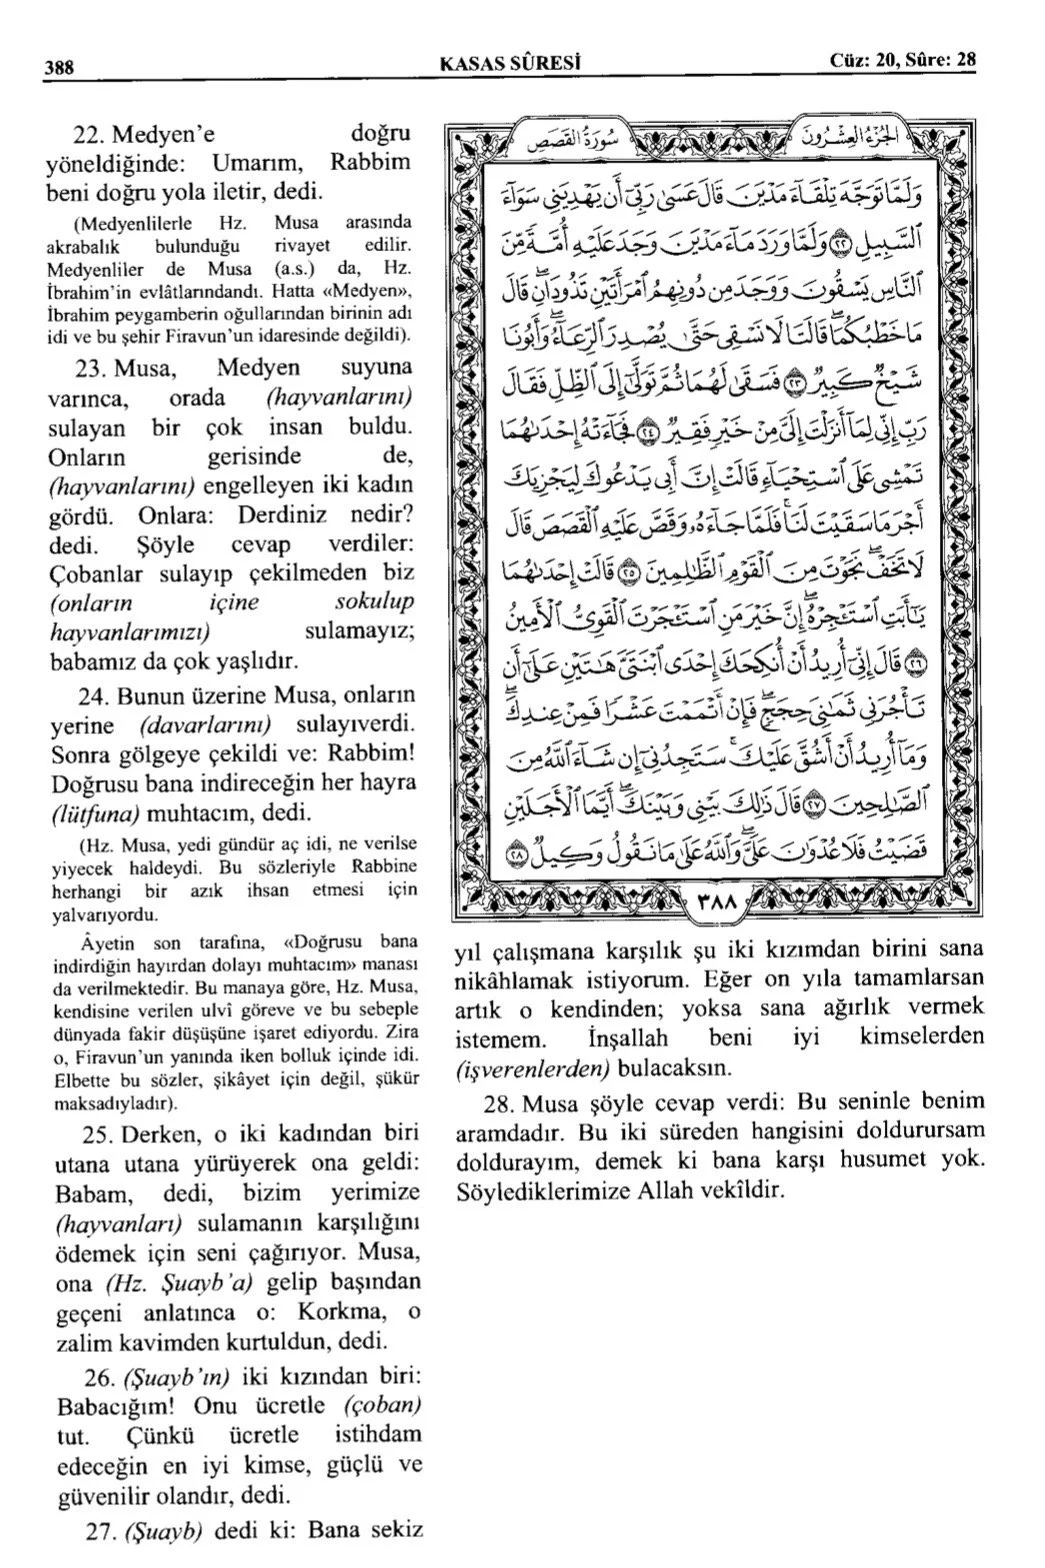 388
KASAS SÛRESİ
Cüz: 20, Sûre: 28
22. Medyen'e doğru
yöneldiğinde: Umarım, Rabbim
beni doğru yola iletir, dedi.
(Medyenlilerle Hz. Musa arasında
akrabalık bulunduğu rivayet edilir.
Medyenliler de Musa (a.s.) da, Hz.
İbrahim'in evlâtlarındandı. Hatta «Medyen»,
İbrahim peygamberin oğullarından birinin adı
idi ve bu şehir Firavun'un idaresinde değildi).
23. Musa, Medyen suyuna
varınca, orada (hayvanlarını)
sulayan bir çok insan buldu.
Onların gerisinde de,
(hayvanlarını) engelleyen iki kadın
gördü. Onlara: Derdiniz nedir?
dedi. Şöyle cevap verdiler:
Çobanlar sulayıp çekilmeden biz
(onların içine sokulup
hayvanlarımızı) sulamayız;
babamız da çok yaşlıdır.
24. Bunun üzerine Musa, onların
yerine (davarlarını) sulayıverdi.
Sonra gölgeye çekildi ve: Rabbim!
Doğrusu bana indireceğin her hayra
(lütfuna) muhtacım, dedi.
(Hz. Musa, yedi gündür aç idi, ne verilse
yiyecek haldeydi. Bu sözleriyle Rabbine
herhangi bir azık ihsan etmesi için
yalvarıyordu.
Âyetin son tarafına, «Doğrusu bana
indirdiğin hayırdan dolayı muhtacım» manası
da verilmektedir. Bu manaya göre, Hz. Musa,
kendisine verilen ulvî göreve ve bu sebeple
dünyada fakir düşüşüne işaret ediyordu. Zira
o, Firavun'un yanında iken bolluk içinde idi.
Elbette bu sözler, şikâyet için değil, şükür
maksadıyladır).
25. Derken, o iki kadından biri
utana utana yürüyerek ona geldi:
Babam, dedi, bizim yerimize
(hayvanları) sulamanın karşılığını
ödemek için seni çağırıyor. Musa,
ona (Hz. Şuayb'a) gelip başından
geçeni anlatınca o: Korkma, o
zalim kavimden kurtuldun, dedi.
26. (Şuayb'ın) iki kızından biri:
Babacığım! Onu ücretle (çoban)
tut. Çünkü ücretle istihdam
edeceğin en iyi kimse, güçlü ve
güvenilir olandır, dedi.
27. (Şuayb) dedi ki: Bana sekiz
الجزء العشرون
سورة القصص
وَلَمَّا تَوَجَّهَ تِلْقَآءَ مَدْيَنَ قَالَ عَسٰى رَبّٖٓي اَنْ يَهْدِيَنٖي سَوَآءَ
السَّبٖيلِ ﴿٢٢﴾ وَلَمَّا وَرَدَ مَآءَ مَدْيَنَ وَجَدَ عَلَيْهِ اُمَّةً مِنَ
النَّاسِ يَسْقُونَ وَوَجَدَ مِنْ دُونِهِمُ امْرَاَتَيْنِ تَذُودَانِۚ قَالَ
مَا خَطْبُكُمَاۜ قَالَتَا لَا نَسْقٖي حَتّٰى يُصْدِرَ الرِّعَآءُ وَاَبُونَا
شَيْخٌ كَبٖيرٌ ﴿٢٣﴾ فَسَقٰى لَهُمَا ثُمَّ تَوَلّٰٓى اِلَى الظِّلِّ فَقَالَ
رَبِّ اِنّٖي لِمَآ اَنْزَلْتَ اِلَيَّ مِنْ خَيْرٍ فَقٖيرٌ ﴿٢٤﴾ فَجَآءَتْهُ اِحْدٰيهُمَا
تَمْشٖي عَلَى اسْتِحْيَآءٍ قَالَتْ اِنَّ اَبٖي يَدْعُوكَ لِيَجْزِيَكَ
اَجْرَ مَا سَقَيْتَ لَنَاۜ فَلَمَّا جَآءَهُ وَقَصَّ عَلَيْهِ الْقَصَصَ قَالَ
لَا تَخَفْ نَجَوْتَ مِنَ الْقَوْمِ الظَّالِمٖينَ ﴿٢٥﴾ قَالَتْ اِحْدٰيهُمَا
يَآ اَبَتِ اسْتَأْجِرْهُ اِنَّ خَيْرَ مَنِ اسْتَأْجَرْتَ الْقَوِيُّ الْاَمٖينُ
﴿٢٦﴾ قَالَ اِنّٖٓي اُرٖيدُ اَنْ اُنْكِحَكَ اِحْدَى ابْنَتَيَّ هَاتَيْنِ عَلٰٓى اَنْ
تَأْجُرَنٖي ثَمَانِيَ حِجَجٍۚ فَاِنْ اَتْمَمْتَ عَشْرًا فَمِنْ عِنْدِكَۚ
وَمَآ اُرٖيدُ اَنْ اَشُقَّ عَلَيْكَۜ سَتَجِدُنٖٓي اِنْ شَآءَ اللّٰهُ مِنَ
الصَّالِحٖينَ ﴿٢٧﴾ قَالَ ذٰلِكَ بَيْنٖي وَبَيْنَكَۜ اَيَّمَا الْاَجَلَيْنِ
قَضَيْتُ فَلَا عُدْوَانَ عَلَيَّۜ وَاللّٰهُ عَلٰى مَا نَقُولُ وَكٖيلٌ ﴿٢٨﴾
٣٨٨
yıl çalışmana karşılık şu iki kızımdan birini sana
nikâhlamak istiyorum. Eğer on yıla tamamlarsan
artık o kendinden; yoksa sana ağırlık vermek
istemem. İnşallah beni iyi kimselerden
(işverenlerden) bulacaksın.
28. Musa şöyle cevap verdi: Bu seninle benim
aramdadır. Bu iki süreden hangisini doldurursam
doldurayım, demek ki bana karşı husumet yok.
Söylediklerimize Allah vekîldir.